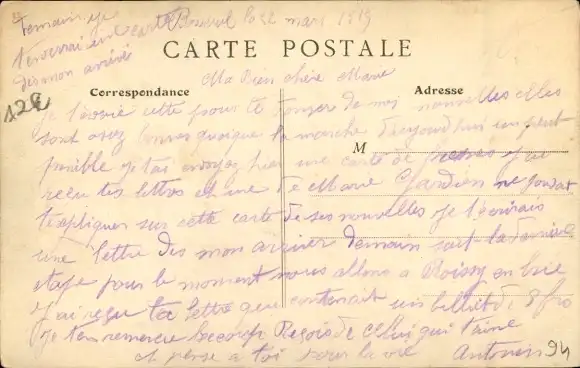 demain je
t'enverrai une carte
des mon arrivée
mars 1919
CARTE POSTALE
Correspondance
Adresse
M
Ma Bien chère Marie
je t'écrie cette pour te donger de mes nouvelles elles
sont assez bonnes quoique la marche d'aujourd'hui un peut
penible je t'ai envoyer hier une carte de j'ai
recu tes lettres et une de Marie ne pouvant
t'expliquer sur cette carte de ses nouvelles je t'écrirais
une lettre des mon arriver demain soit la dernière
etape pour le moment nous allons a Boissy en brie
j'ai reçu ta lettre que contenait un billet de 5 frs
je t'en remercie becoup Reçois de celui qui t'aime
et pense a toi pour la vie Antonin
94